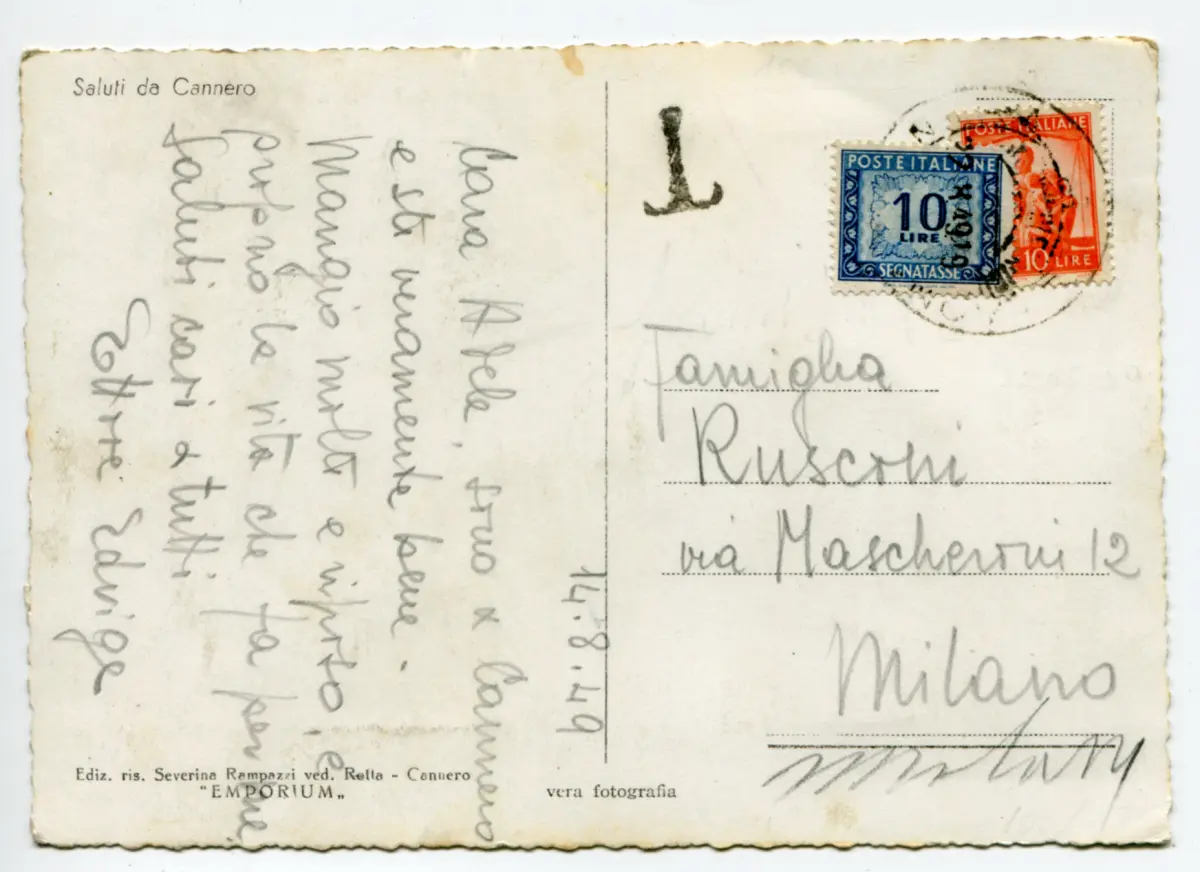 Saluti da Cannero
Cara Adele, sono a Cannero
e sto veramente bene.
Mangio molto e riposo; è
proprio la vita che fa per me.
Saluti cari a tutti
Ettore Edvige
14.8.49
Ediz. ris. Severina Rampazzi ved. Rolla - Cannero
"EMPORIUM„
vera fotografia
T
POSTE ITALIANE
10
LIRE
SEGNATASSE
POSTE ITALIANE
10 LIRE
Famiglia
Rusconi
via Mascheroni 12
Milano